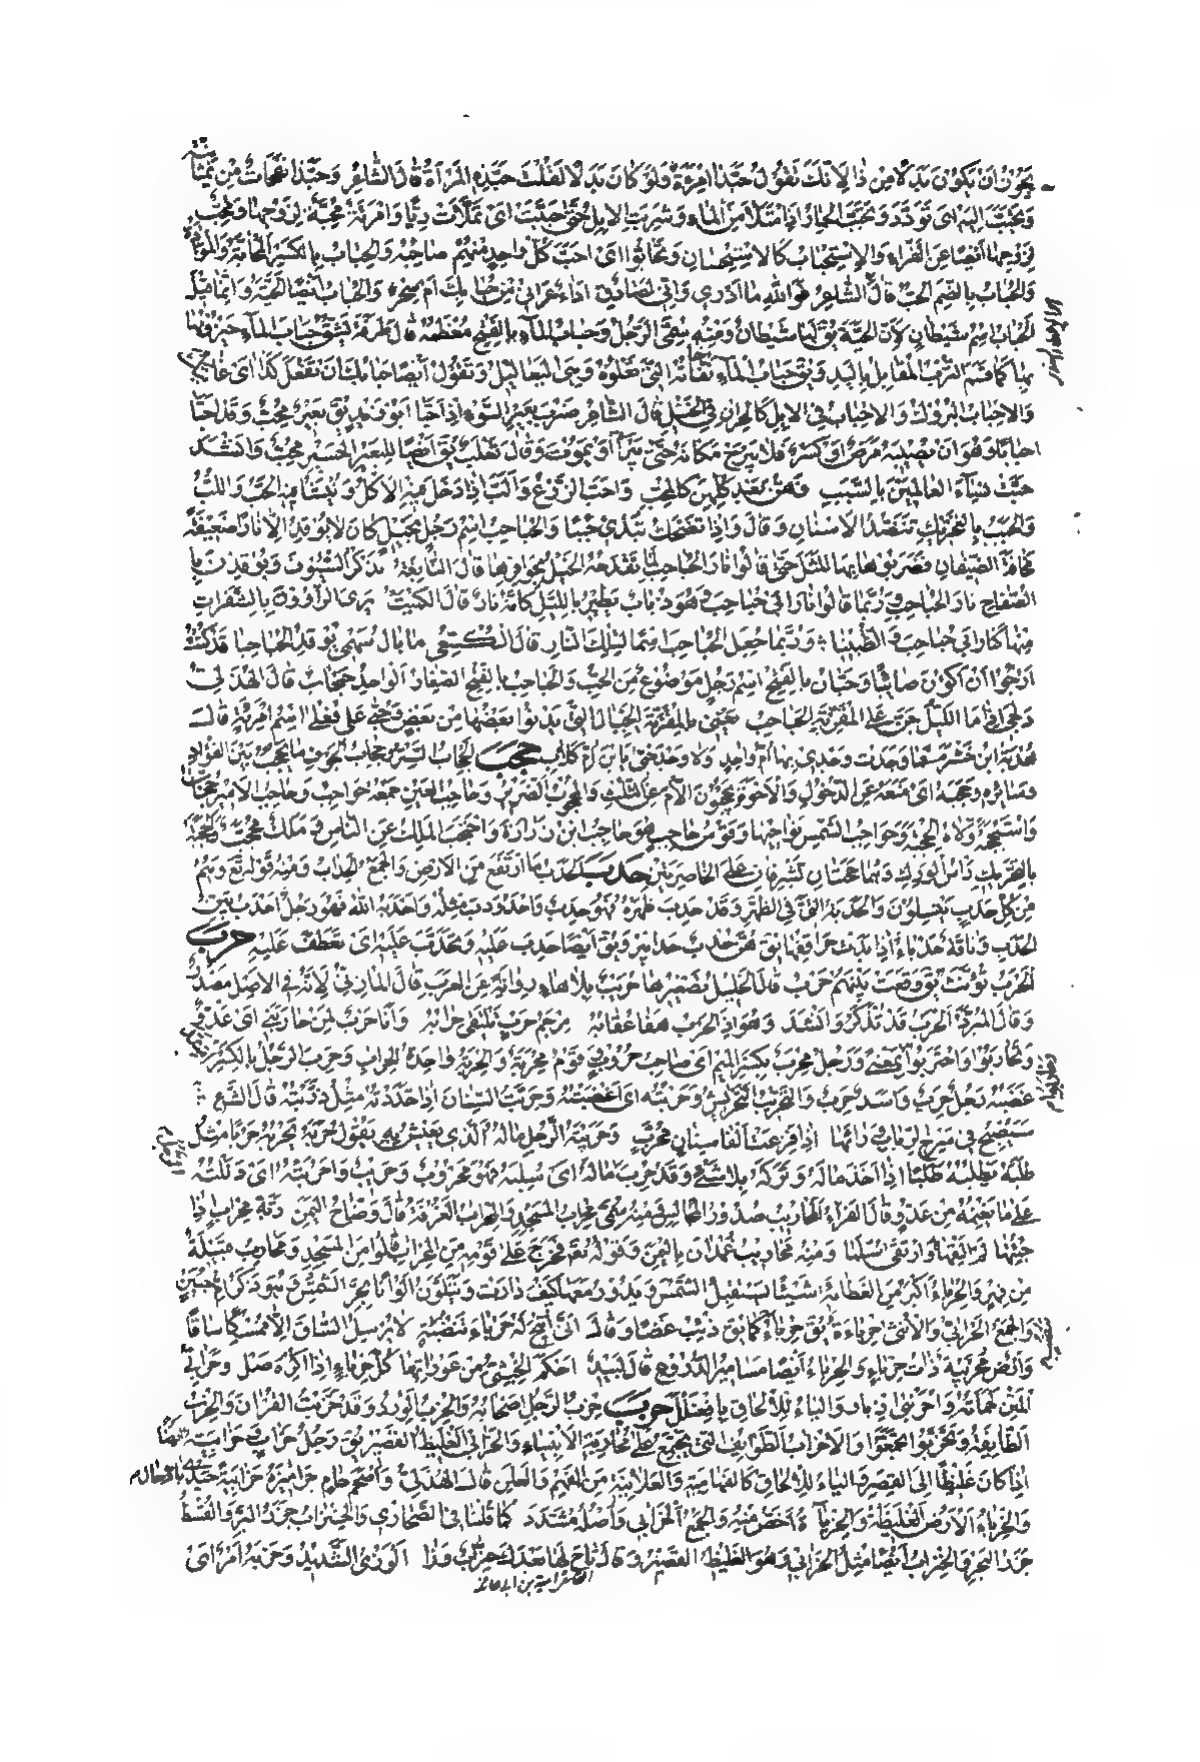 يجوز ان يكون بدلا من ذا لانك تقول حبذا امرءة ولو كان بدلا لقلت حبذه المرأة قال الشاعر وحبذا نفحات من يمانية
وتحبب اليه اى تودد وتحبب الحمار اذا امتلا من الماء وشربت الابل حتى حببت اى تملأت ريا وامرءة محبة لزوجها ومحب
لزوجها ايضا عن الفراء والاستحباب كالاستحسان وتحابوا اى احب كل واحد منهم صاحبه والحباب بالكسر المحابة والموادة
والحباب بالضم الحب قال الشاعر فوالله ما ادرى وانى لصادق اداء عرانى من حبابك ام سحر والحباب ايضا الحية وانما قيل
الحباب اسم شيطان لان الحية يق لها شيطان ومنه سمى الرجل وحباب الماء بالفتح معظمه قال طرفة يشق حباب الماء حيزومها
بها كما قسم الترب المفايل باليد ويق حباب الماء نفاخاته التى تعلوه وهى اليعاليل وتقول ايضا حبابك ان تفعل كذا اى غايتك
والاحباب البروك والاحباب فى الابل كالحران فى الخيل قال الشاعر ضرب بعير السوء اذ احبا ابو زيد يق بعير محب وقد احب
احبابا وهو ان يصيبه مرض او كسر فلا يبرح مكانه حتى يبرأ او يموت وقال ثعلب يق ايضا للبعير الحسير محب وانشد
حبت نساء العالمين بالسبب فهن بعد كلهن كالمحب واحب الزرع والب اذا دخل فيه الاكل وتنشأ فيه الحب واللب
والحبب بالتحريك تنضد الاسنان وقال واذا تضحك تبدى حببا والحباحب اسم رجل بخيل كان لا يوقد الا نارا ضعيفة
مخافة الضيفان فضربوا بها المثل حتى قالوا نار الحباحب لما تقدحه الخيل بحوافرها قال النابغة يذكر السيوف ويوقدن بالصفاح
الصفاح نار الحباحب وربما قالوا نار ابى حباحب وهو ذباب يطير بالليل كانه نار قال الكميت يرى الراؤون بالشفرات
منها كنار ابى حباحب والظبينا وربما جعل الحباحب اسما لتلك النار قال الكسعى ما بال سهمى يوقد الحباحبا قد كنت
ارجو ان اكون صائبا وحبان بالفتح اسم رجل موضوع من الحب والحباحب بالفتح الصغار الواحد حبحاب قال الهذلى
دلجى اذا ما الليل جن على المقرنة الحباحب يعنى بالمقرنة الجبال التى يدنو بعضها من بعض وحبى على فعلى اسم امرءة قال
هدبة ابن خشرم فما وجدت وجدى بها ام واحد ولا وجد حبى بابن ام كلاب حجب الحجاب الستر وحجاب الجوف ما يحجب بين الفؤاد
وسائره وحجبه اى منعه عن الدخول والاخوة يحجبون الام عن الثلث والمحجوب الضرير وحاجب العين جمعه حواجب وحاجب الامير جمعه حجاب
واستحجبه ولاه الحجبة وحواجب الشمس نواحيها وقوس حاجب هو حاجب ابن زرارة واحتجب الملك عن الناس وملك محجب والحجبة
بالتحريك راس الورك وهما حجبتان تشرفان على الخاصرتين حدب الحدب ما ارتفع من الارض والجمع الحداب ومنه قوله تع وهم
من كل حدب ينسلون والحدبة التى فى الظهر وقد حدب ظهره فهو حدب واحدودب مثله واحدبه الله فهو رجل احدب بين
الحدب وناقة حدباء اذا بدت حراقفها يق هن حدب حدابير ويق ايضا حدب عليه وتحدب عليه اى تعطف عليه حرب
الحرب تؤنث يق وقعت بينهم حرب قال الخليل تصغيرها حريب بلا هاء رواية عن العرب قال المازنى لانه فى الاصل مصدر
وقال المبرد الحرب قد تذكر وانشد وهو اذا الحرب هفا عقابه مرجم حرب تلتقى حرابه وانا حرب لمن حاربنى اى عدو
وتحاربوا واحتربوا بمعنى ورجل محرب بكسر الميم اى صاحب حروب وقوم محربة والحربة واحدة الحراب وحرب الرجل بالكسر اشتد
غضبه ورجل حرب واسد حرب والتحريب التحريش وحربته اى اغضبته وحربت السنان اذا حددته مثل ذربته قال الشاعر
سيصبح فى سرح الرباب وراءها اذا فزعت الفا سنان محرب وحريبة الرجل ماله الذى يعيش به يقول حربه يحربه حربا مثل
طلبه يطلبه طلبا اذا اخذ ماله وتركه بلا شئ وقد حرب ماله اى سلبه فهو محروب وحريب واحربته اى دللته
على ما يغنمه من عدو وقال الفراء المحاريب صدور المجالس ومنه سمى محراب المسجد والمحراب الغرفة قال وضاح اليمن ربة محراب اذا
جئتها لم القها او ارتقى سلما ومنه محاريب غمدان باليمن وقوله تع فخرج على قومه من المحراب قالوا من المسجد ومحارب قبيلة
من فهر والحرباء اكبر من العظاءة شيئا يستقبل الشمس ويدور معها كيف دارت ويتلون الوانا بحر الشمس وهو ذكر ام حبين
والجمع الحرابى والانثى حرباءة يق حرباء كما يق ذئب غضا وقال انى اتيح له حرباء تنضبة لا يرسل الساق الا ممسكا ساقا
وارض محربئة ذات حرباء والحرباء ايضا مسامير الدروع قال لبيد احكم الجنثى من عوراتها كل حرباء اذا اكره صل وحرابى
المتن لحماته واحرنبى ازبار والياء للالحاق بافعنلل حزب حزب الرجل اصحابه والحزب الورد وقد حزبت القرآن والحزب
الطايفة وتحزبوا تجمعوا والاحزاب الطوايف التى تجتمع على محاربة الانبياء والحزابى الغليظ القصير يق رجل حزاب وحزابية ايضا
اذا كان غليظا الى القصر والياء للالحاق كالفهامية والعلانية من الفهم والعلن قال الهذلى او اصحم حام جراميزه حزابية حيدى بالدحال
والحزباءة الارض الغليظة والحزباءة اخص منه والجمع الحزابى واصله مشدد كما قلنا فى الصحارى والحنزاب جزر البر والقسط
جزر البحر والحنزاب ايضا مثل الحزابى وهو الغليظ القصير وقال تاح لها بعدك حنزاب وزا الوزى الشديد وحزبه امر اى